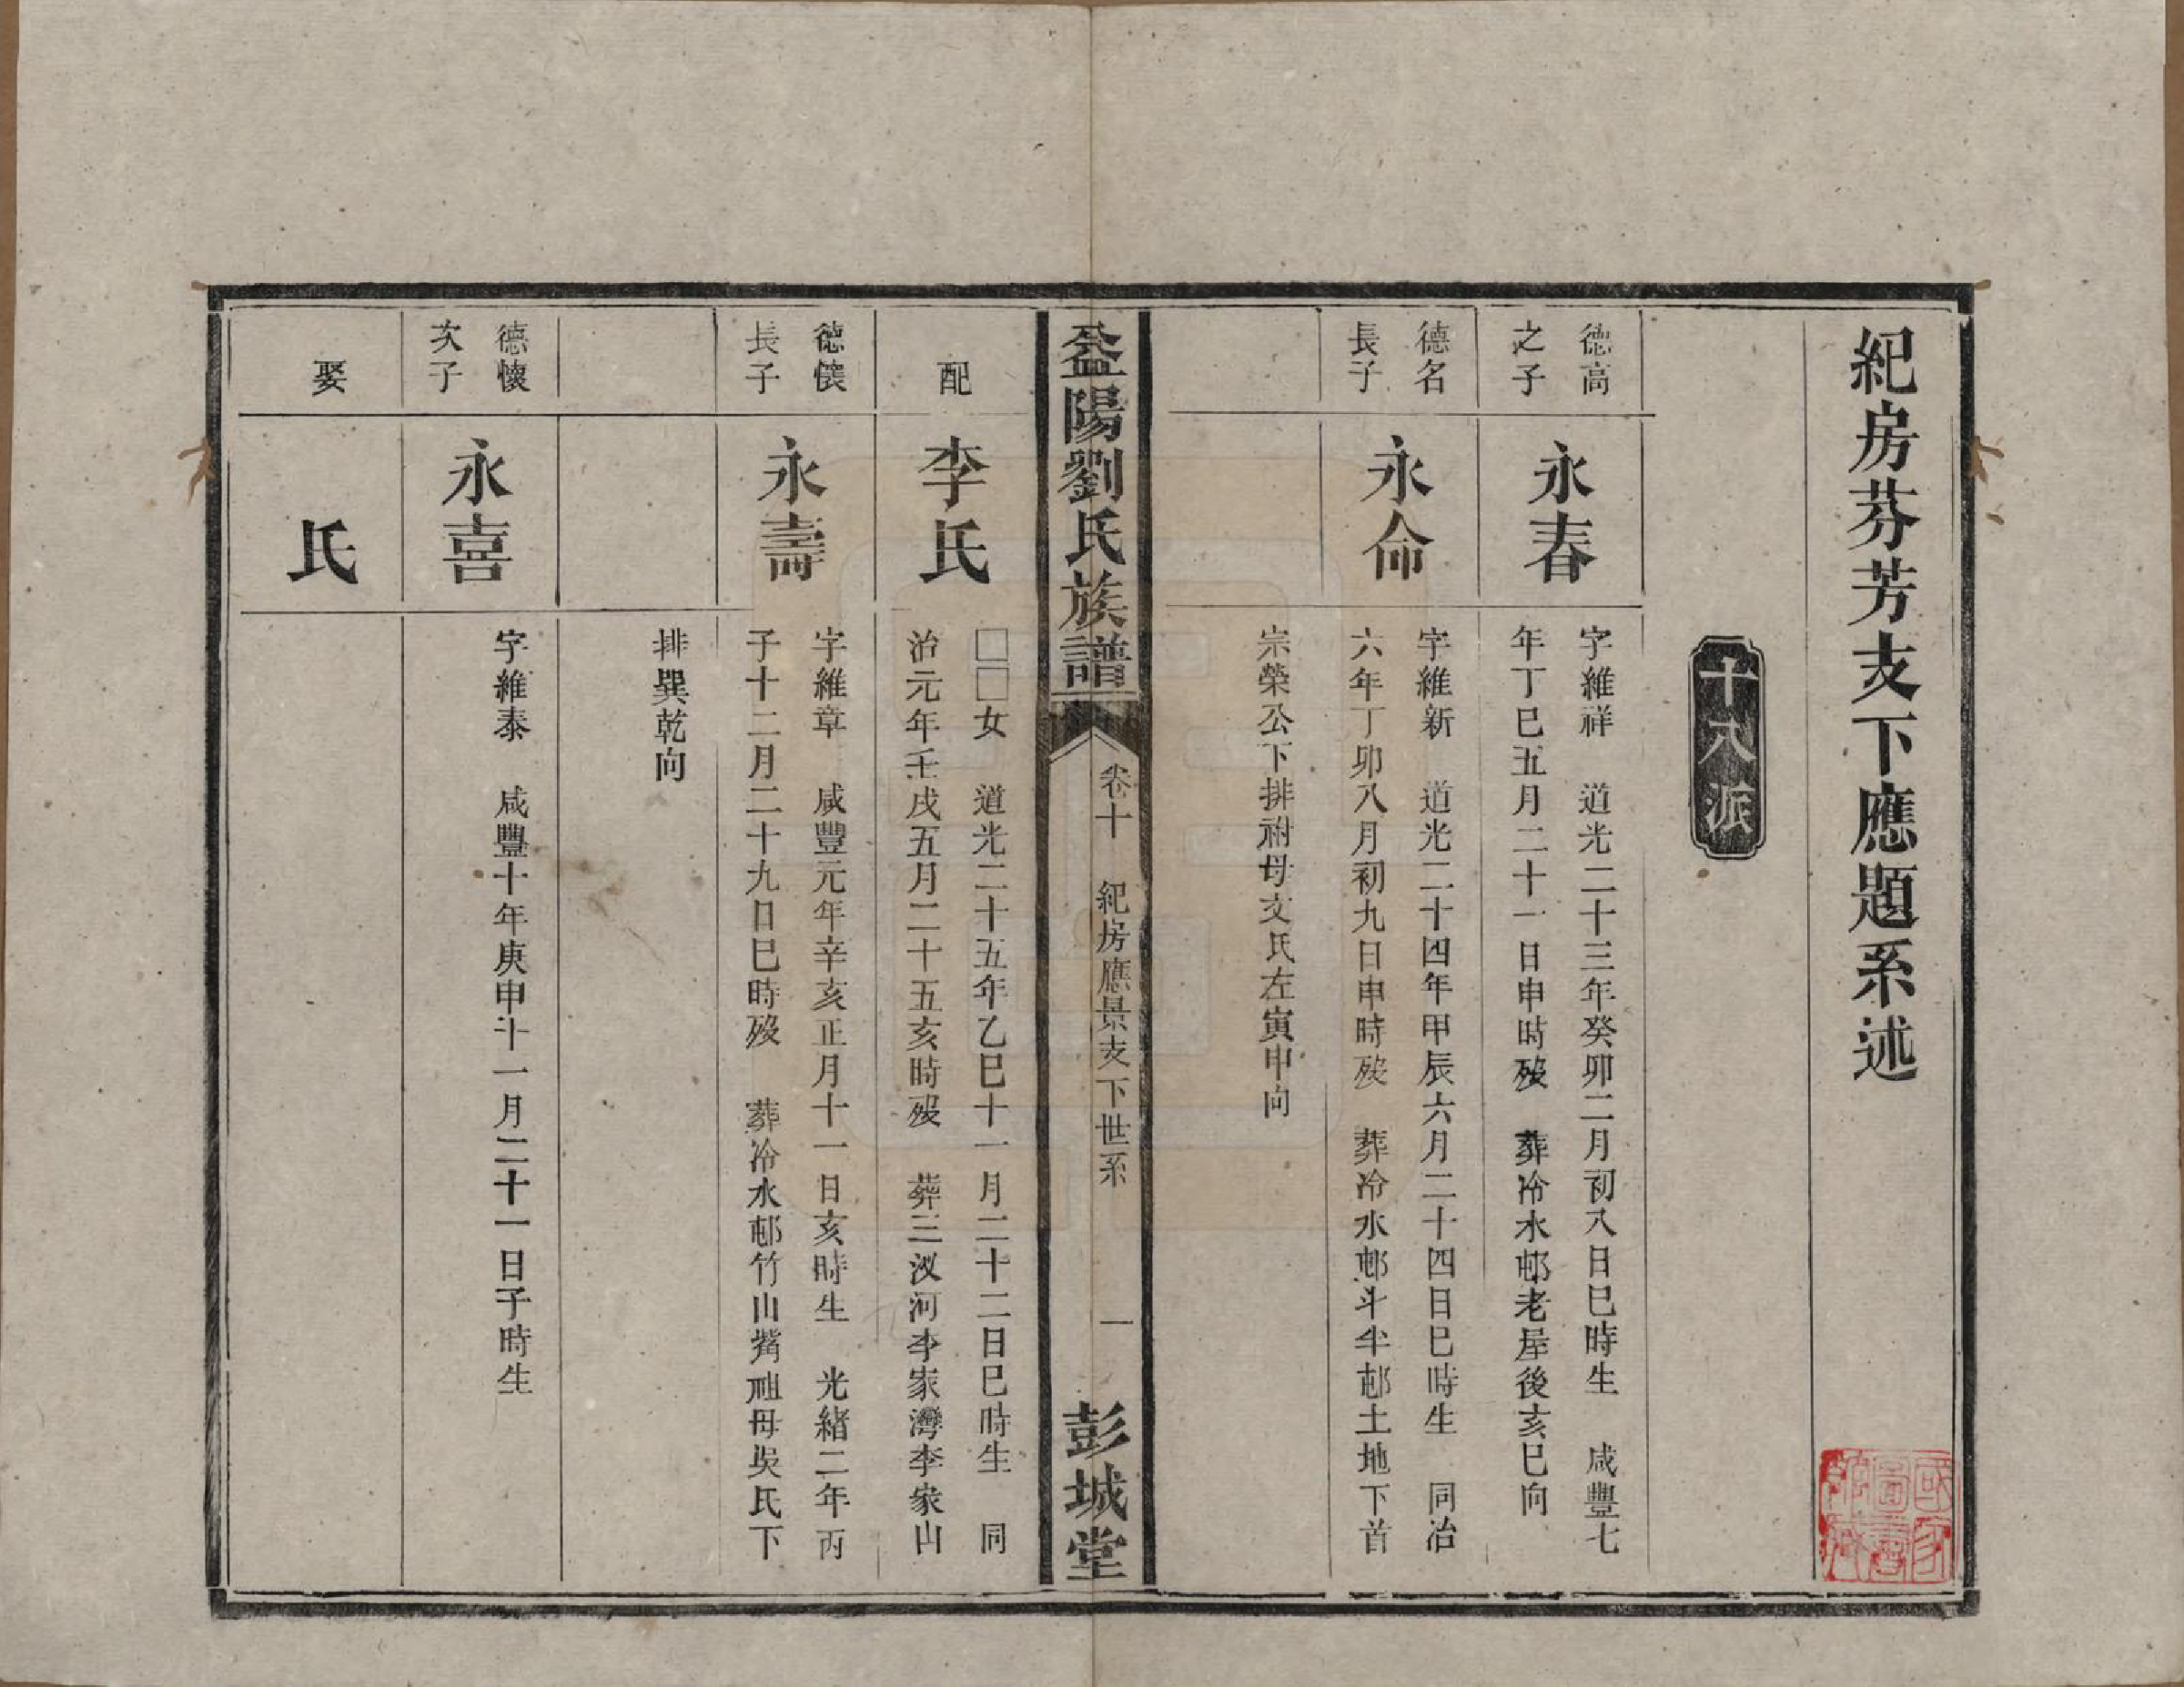 紀房芬芳支下應題系述
十八派
德高
之子
永春
字維祥　道光二十三年癸卯二月初八日巳時生　咸豐七
年丁巳五月二十一日申時歿　葬冷水邨老屋後亥巳向
德名
長子
永命
字維新　道光二十四年甲辰六月二十四日巳時生　同治
六年丁卯八月初九日申時歿　葬冷水邨斗半邨土地下首
宗榮公下排祔母文氏左寅申向
益陽劉氏族譜
卷十　紀房應景支下世系　一
彭城堂
配
李氏
□□女　道光二十五年乙巳十一月二十二日巳時生　同
治元年壬戌五月二十五亥時歿　葬三汊河李家灣李家山
德懷
長子
永壽
字維章　咸豐元年辛亥正月十一日亥時生　光緒二年丙
子十二月二十九日巳時歿　葬冷水邨竹山觜祖母吳氏下
排巽乾向
德懷
次子
永喜
字維泰　咸豐十年庚申十一月二十一日子時生
娶
氏
國家
圖書
館藏